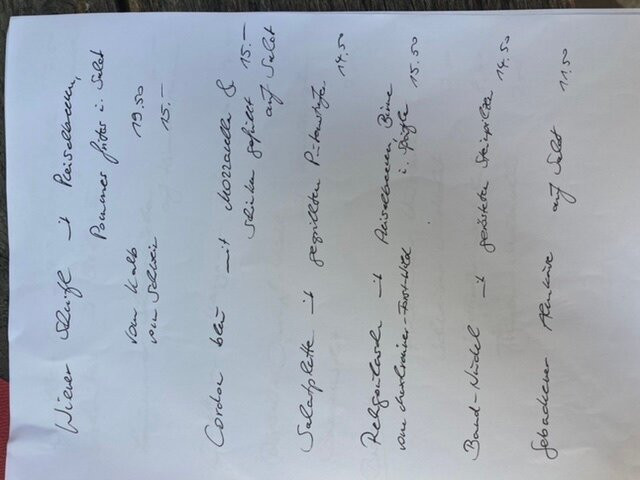 Wiener Schnitzel mit Preiselbeeren,
Pommes frites u. Salat
vom Kalb 19,50
vom Schwein 15.-
Cordon bleu mit Mozzarella &
Schinken gefüllt 15.-
auf Salat
Salatplatte mit gegrillten Putenstreifen 14,50
mit Preiselbeeren, Birne
u. Spätzle 15,50
Band-Nudel mit gerösteten Steinpilzen 14,50
Gebackener Almkäse auf Salat 11,50